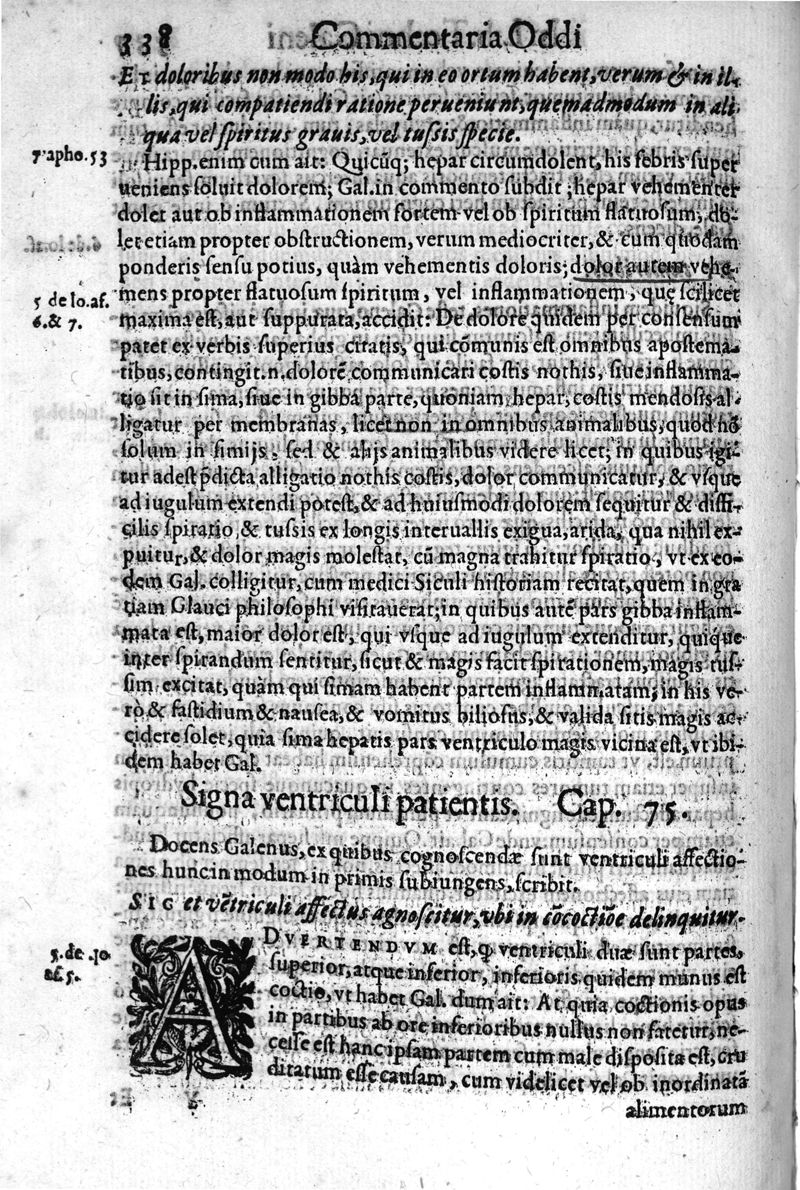 338 Commentaria Oddi
Et doloribus non modo his, qui in eo ortum habent, verum & in il-
lis, qui compatiendi ratione perueniunt, quemadmodum in ali
qua vel spiritus grauis, vel tussis specie.
7 apho. 53
Hipp. enim cum ait: Quicũq; hepar circumdolent, his febris super
ueniens soluit dolorem; Gal. in commento subdit; hepar vehementer
dolet aut ob inflammationem fortem vel ob spiritum flatuosum; do-
let etiam propter obstructionem, verum mediocriter, & cum quodam
ponderis sensu potius, quàm vehementis doloris; dolor autem vehe-
5 de lo. af.
6. & 7.
mens propter flatuosum spiritum, vel inflammationem, quę scilicet
maxima est, aut suppurata, accidit: De dolore quidem per consensum
patet ex verbis superius citatis, qui cõmunis est omnibus apostema-
tibus, contingit .n. dolorẽ communicari costis nothis, siue inflamma-
tio sit in sima, siue in gibba parte, quoniam hepar, costis mendosis al-
ligatur per membranas, licet non in omnibus animalibus, quod nõ
solum in simijs, sed & alijs animalibus videre licet; in quibus igi-
tur adest p̃dicta alligatio nothis costis, dolor communicatur, & vsque
ad iugulum extendi potest, & ad huiusmodi dolorem sequitur & diffi-
cilis spiratio, & tussis ex longis interuallis exigua, arida, qua nihil ex-
puitur, & dolor magis molestat, cũ magna trahitur spiratio, vt ex eo-
dem Gal. colligitur, cum medici Siculi historiam recitat, quem in gra
tiam Glauci philosophi visitauerat; in quibus autẽ pars gibba inflam-
mata est, maior dolor est, qui vsque ad iugulum extenditur, quiq́ue
inter spirandum sentitur, sicut & magis facit spirationem, magis tus-
sim excitat, quàm qui simam habent partem inflammatam; in his ve-
rò & fastidium & nausea, & vomitus biliosus, & valida sitis magis ac-
cidere solet, quia sima hepatis pars ventriculo magis vicina est, vt ibi-
dem habet Gal.
Signa ventriculi patientis. Cap. 75.
Docens Galenus, ex quibus cognoscendæ sunt ventriculi affectio-
nes hunc in modum in primis subiungens, scribit.
SIC et vẽtriculi affectus agnoscitur, vbi in cõcoctiõe delinquitur.
5. de lo.
af. 5.
ADVERTENDVM est, ꝙ ventriculi duæ sunt partes,
superior, atque inferior, inferioris quidem munus est
coctio, vt habet Gal. dum ait: At quia coctionis opus
in partibus ab ore inferioribus nullus non fatetur, ne-
cesse est hanc ipsam partem cum male disposita est, cru
ditatum esse causam, cum videlicet vel ob inordinatã
alimentorum